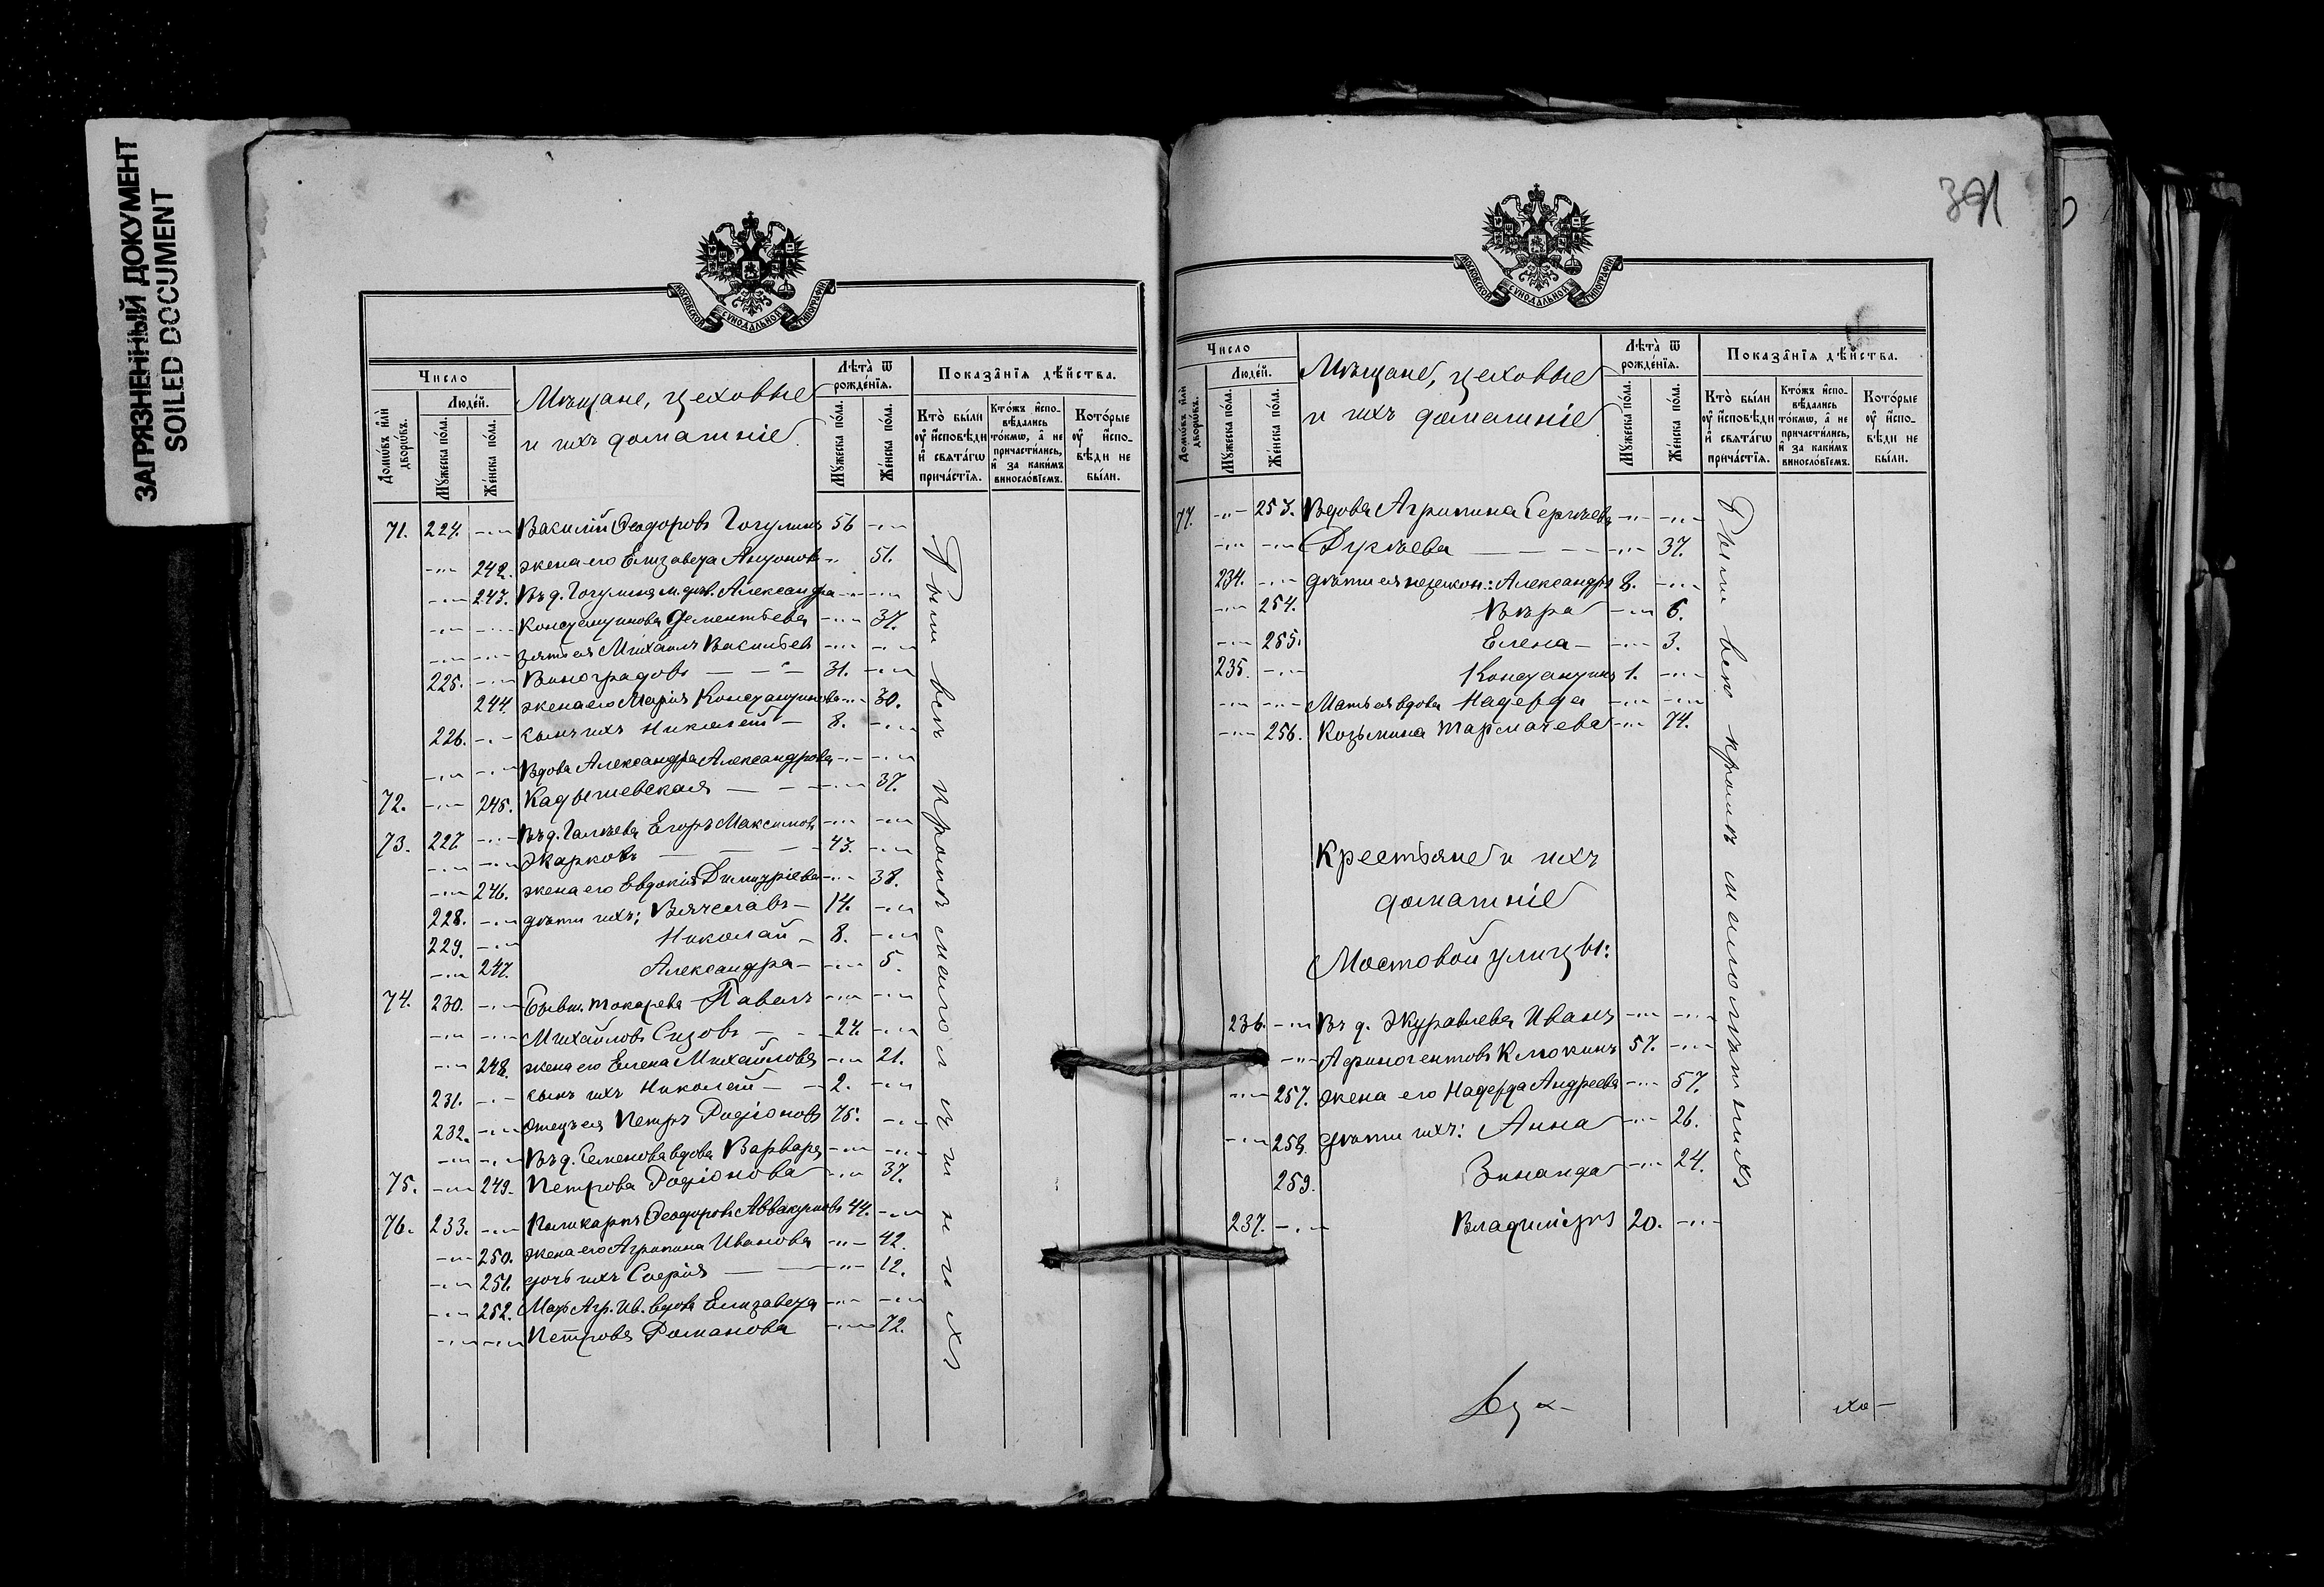 ЗАГРЯЗНЕННЫЙ ДОКУМЕНТ
SOILED DOCUMENT
МОСКОВСКОЙ СѴНОДАЛЬНОЙ ТИПОГРАФІИ
Число
Людей.
Домѡвъ или дворѡвъ.
Мужеска пола.
Женска пола.
Мѣщане, цеховые
и ихъ домашніе
Лѣта ѿ рожденія.
Мужеска пола.
Женска пола.
Показанія дѣйства.
Кто были оу исповѣди и святагѡ причастія.
Ктожъ исповѣдались токмѡ, а не причастились, и за какимъ винословіемъ.
Которые оу исповѣди не были.
71. 224. -"- Василій Ѳеодоровъ Гогулинъ 56 -"-
-"- 242. жена его Елизавета Антонова -"- 51.
-"- 243. Въ д. Гогулина м. дѣв. Александра -"- -"-
-"- -"- Константинова Дементьева -"- 37.
-"- -"- зять ея Михаилъ Васильевъ -"- -"-
225. -"- Виноградовъ — - - 31. -"-
244. жена его Марія Константинова -"- 30.
226. -"- сынъ ихъ Николай — 8. -"-
-"- -"- Вдова Александра Александрова -"- -"-
72. -"- 245. Кадышевская — - -"- 37.
73. 227. -"- Въ д. Галѣева Егоръ Максимовъ -"- -"-
-"- -"- Жарковъ — — - 43. -"-
-"- 246. жена его Евдокія Димитріева -"- 38.
228. -"- дѣти ихъ: Вячеславъ — 14. -"-
229. -"- Николай — 8. -"-
-"- 247. Александра — -"- 5.
74. 230. -"- Бывш. Токарева Павелъ -"- -"-
-"- -"- Михайловъ Сизовъ — - 24. -"-
-"- 248. жена его Елена Михайлова -"- 21.
231. -"- сынъ ихъ Николай — - 2. -"-
232. -"- Отецъ ея Петръ Родіоновъ 75. -"-
-"- -"- Въ д. Семенова вдова Варвара -"- -"-
75. -"- 249. Петрова Родіонова -"- 37.
76. 233. -"- Поликарпъ Ѳеодоровъ Аввакумовъ 44. -"-
-"- 250. жена его Агрипина Иванова -"- 42.
-"- 251. дочь ихъ Софія — — -"- 12.
-"- 252. Мать Агр. Ив. вдова Елизавета -"- -"-
-"- -"- Петрова Романова -"- 72.
Были всѣ кромѣ малолѣтнихъ
391
МОСКОВСКОЙ СѴНОДАЛЬНОЙ ТИПОГРАФІИ
Число
Людей.
Домѡвъ или дворѡвъ.
Мужеска пола.
Женска пола.
Мѣщане, цеховые
и ихъ домашніе
Лѣта ѿ рожденія.
Мужеска пола.
Женска пола.
Показанія дѣйства.
Кто были оу исповѣди и святагѡ причастія.
Ктожъ исповѣдались токмѡ, а не причастились, и за какимъ винословіемъ.
Которые оу исповѣди не были.
77. -"- 253. Вдова Агрипина Сергѣева -"- -"-
-"- -"- — — - -"- 37.
234. -"- дѣти ея незакон.: Александръ 8. -"-
-"- 254. Вѣра -"- 6.
-"- 255. Елена — -"- 3.
235. -"- Константинъ 1. -"-
-"- -"- Мать ея вдова Надежда -"- -"-
-"- 256. Козьмина Тармачева -"- 74.
Крестьяне и ихъ
домашніе
Мостовой улицы:
236. -"- Въ д. Журавлева Иванъ -"- -"-
-"- Афиногентовъ Клюкинъ 57. -"-
-"- 257. жена его Надежда Андреева -"- 57.
-"- 258. дѣти ихъ: Анна -"- 26.
259. Зинаида -"- 24.
237. -"- Владиміръ 20. -"-
Были всѣ кромѣ малолѣтнихъ